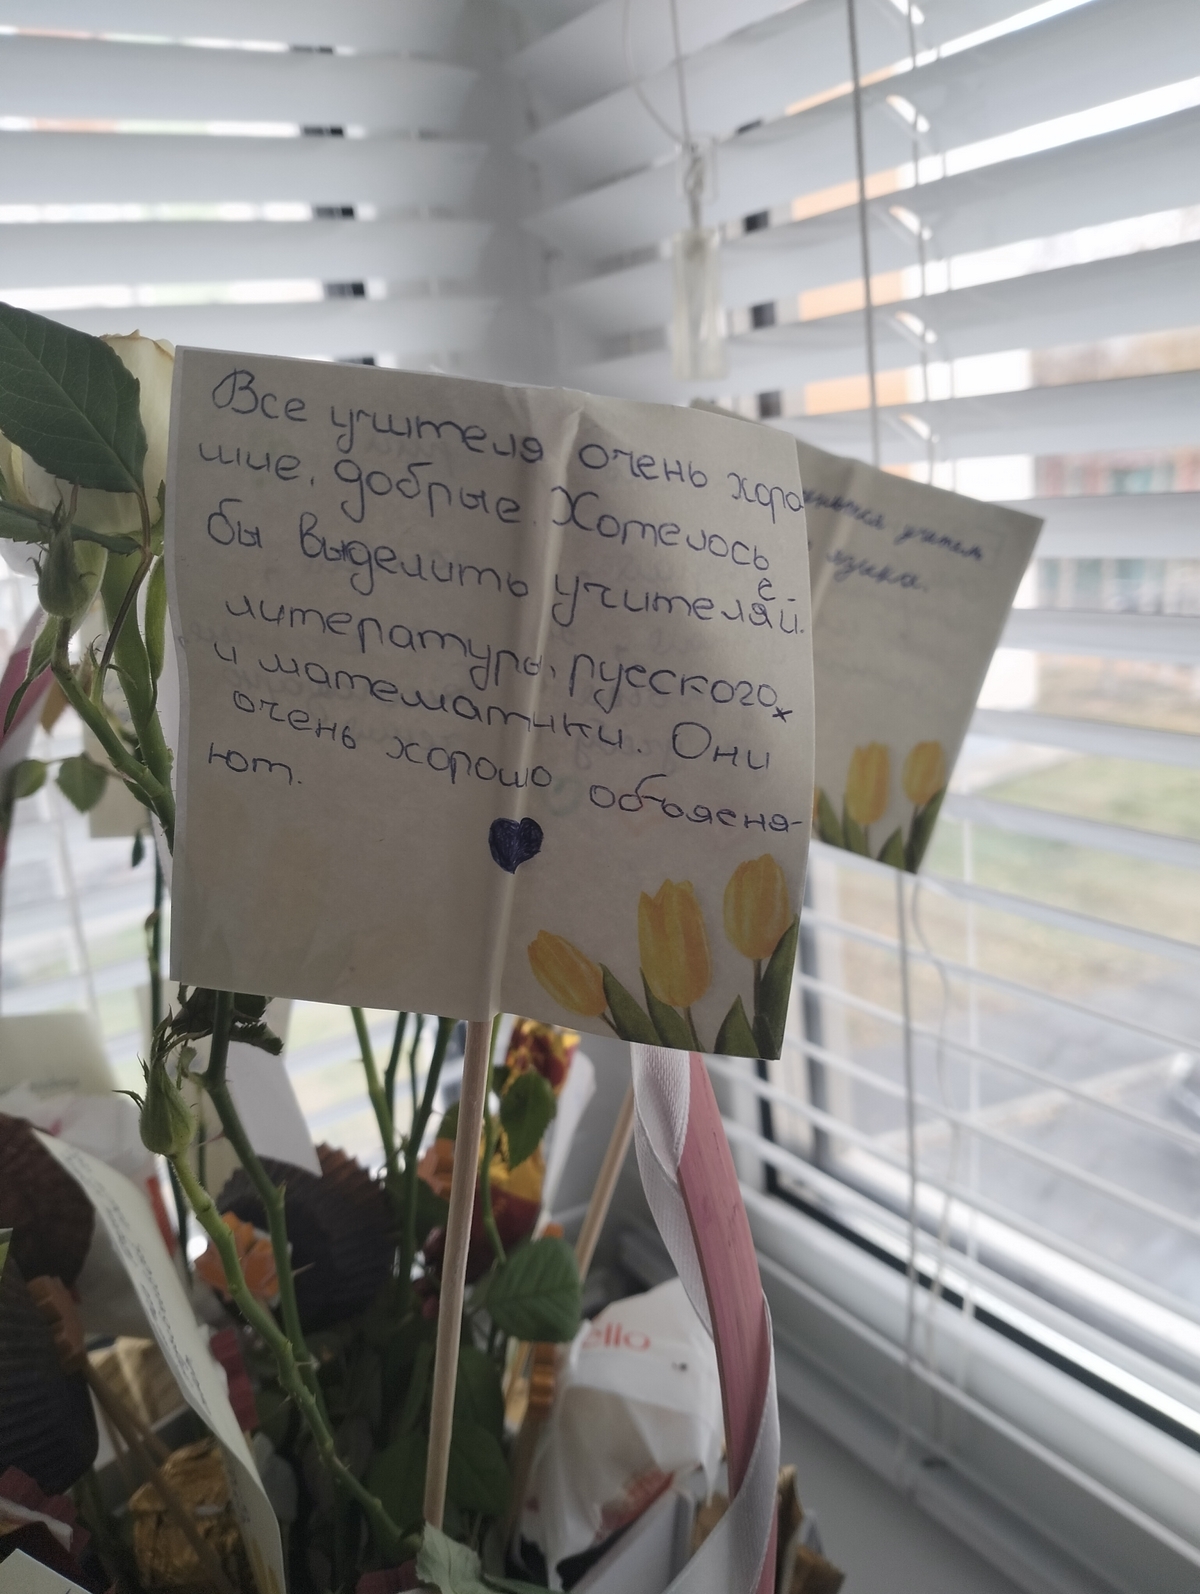 Все учителя очень хоро
шие, добрые. Хотелось
бы выделить учителей.
литературы, русского,
и математики. Они
очень хорошо объясня-
ют.
учитель
языка.
ello